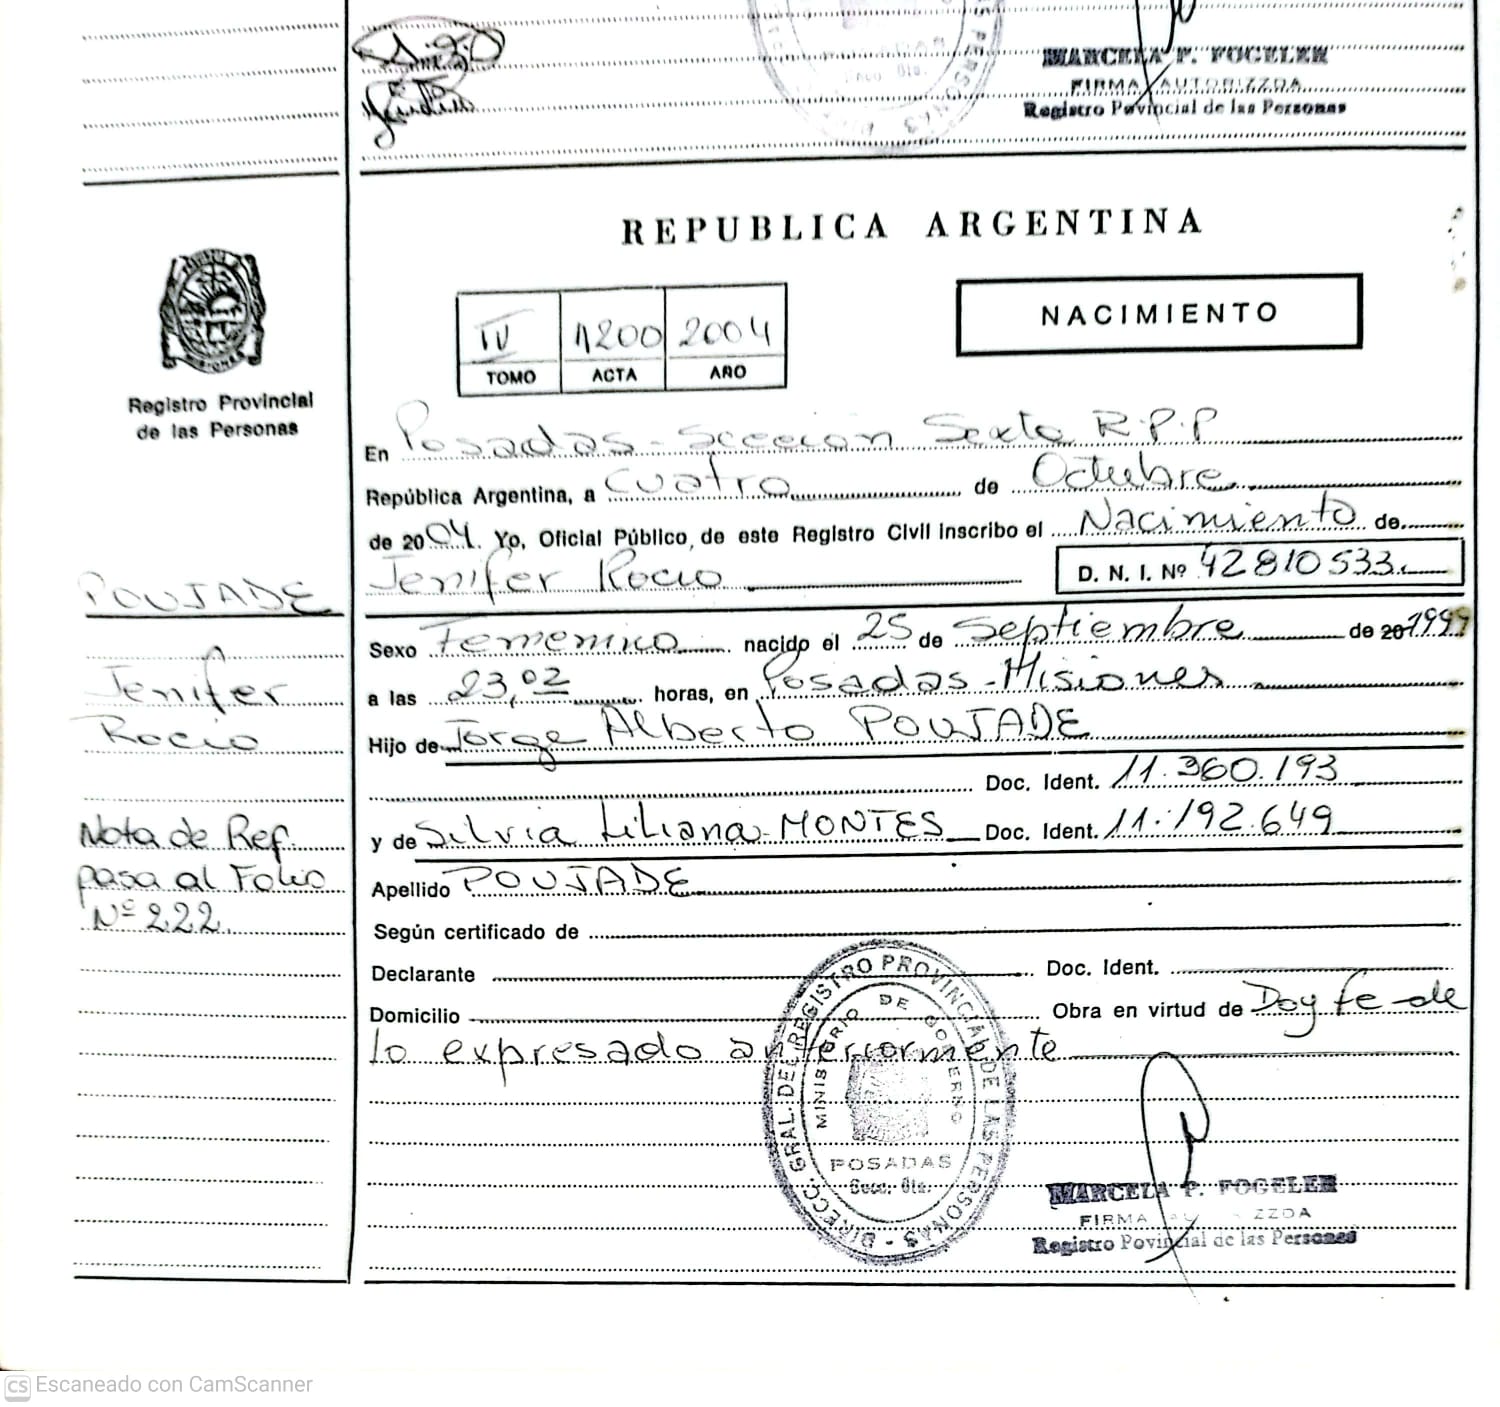 MARCELA P. FOGELER
FIRMA AUTORIZZDA
Registro Povincial de las Personas
REPUBLICA ARGENTINA
NACIMIENTO
IV 1200 2004
TOMO ACTA AÑO
Registro Provincial
de las Personas
En Posadas - Sección Sexta R.P.P
República Argentina, a cuatro de Octubre
de 2004. Yo, Oficial Público, de este Registro Civil inscribo el Nacimiento de
Jenifer Rocio D. N. I. Nº 42810533
POUJADE
Jenifer
Rocio
Sexo Femenino nacido el 25 de Septiembre de 20 1999
a las 23,02 horas, en Posadas - Misiones
Hijo de Jorge Alberto POUJADE
Doc. Ident. 11.360.193
y de Silvia Liliana MONTES Doc. Ident. 11.192.649
Nota de Ref.
pasa al Folio
Nº 222.
Apellido POUJADE
Según certificado de
Declarante Doc. Ident.
Domicilio Obra en virtud de Doy fe de
lo expresado anteriormente
DIRECC. GRAL. DEL REGISTRO PROVINCIAL DE LAS PERSONAS
MINISTERIO DE GOBIERNO
POSADAS
Secc. 6ta.
MARCELA P. FOGELER
FIRMA ZZDA
Registro Povincial de las Personas
CS Escaneado con CamScanner